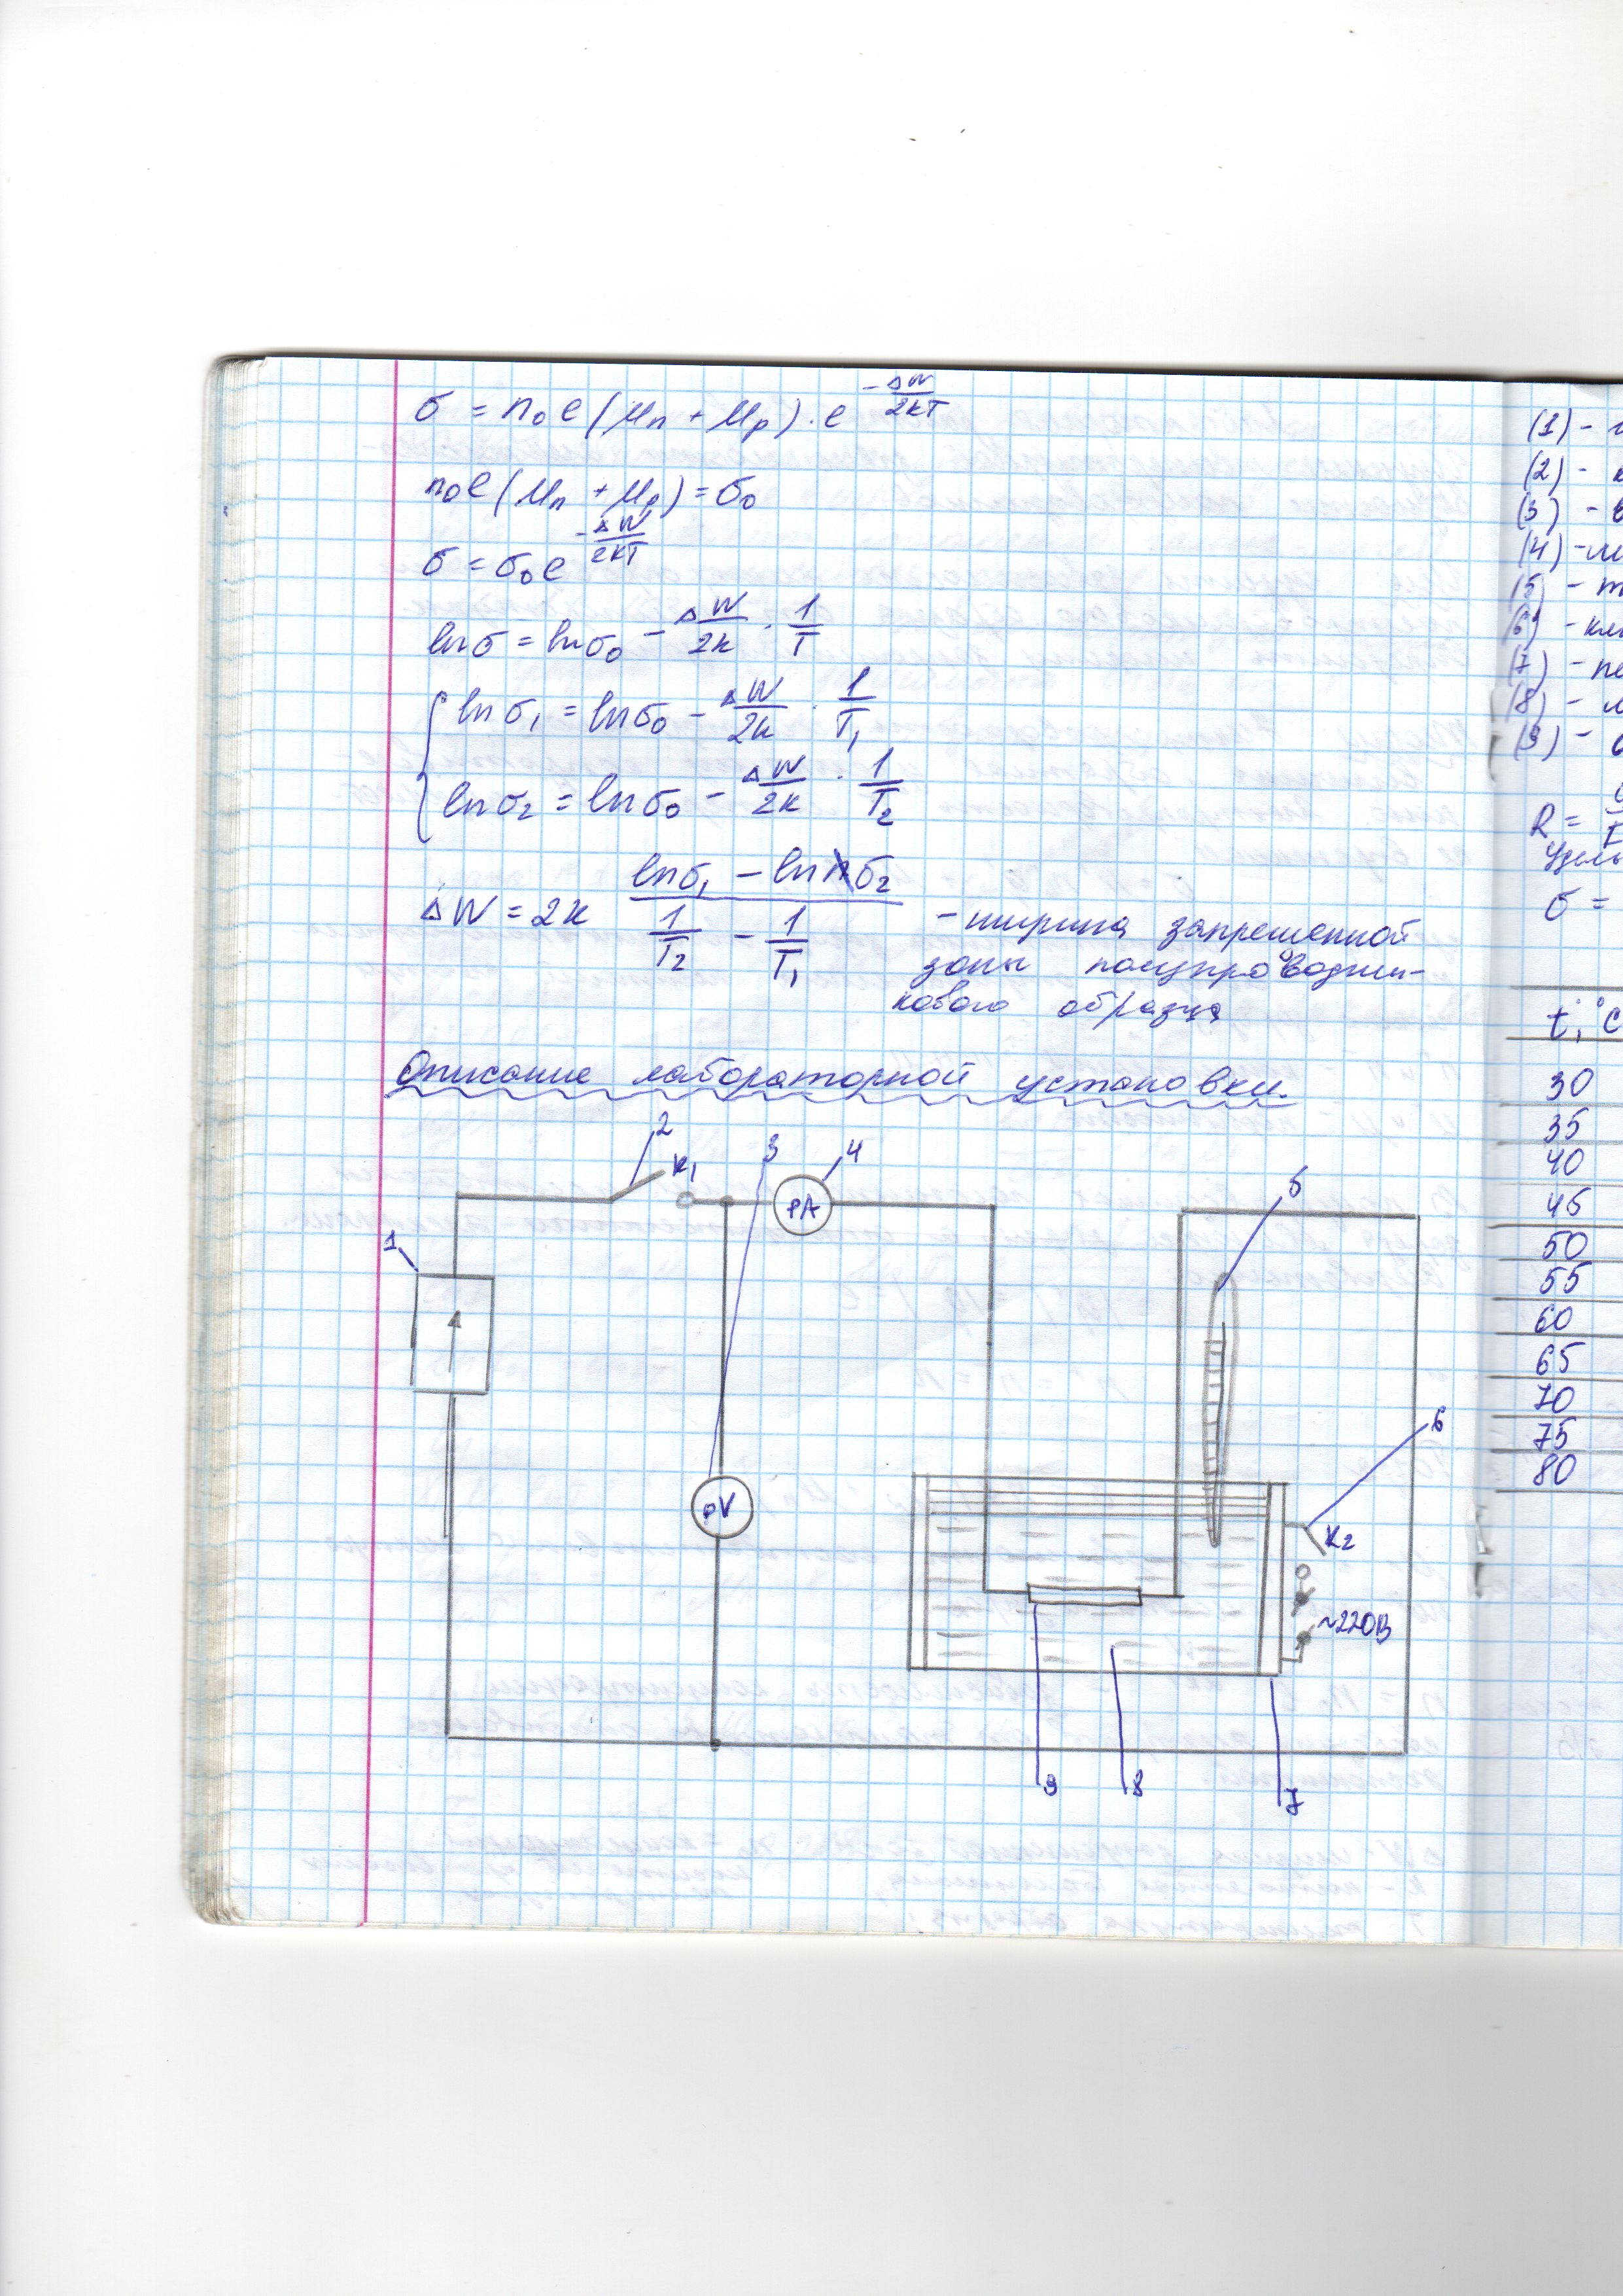 σ = n₀e(μₙ + μₚ)·e^(-ΔW/2kT)
n₀e(μₙ + μₚ) = σ₀
σ = σ₀e^(-ΔW/2kT)
lnσ = lnσ₀ - ΔW/2k · 1/T
lnσ₁ = lnσ₀ - ΔW/2k · 1/T₁
lnσ₂ = lnσ₀ - ΔW/2k · 1/T₂
ΔW = 2k (lnσ₁ - lnσ₂)/(1/T₂ - 1/T₁) - ширина запрещенной
зоны полупроводни-
кового образца
Описание лабораторной установки.
2
K₁
3
4
PA
5
1
6
pV
K₂
~220В
9
8
7
(1) -
(2) -
(3) -
(4) -
(5) -
(6) -
(7) -
(8) -
(9) -
R =
σ =
t, °C
30
35
40
45
50
55
60
65
70
75
80